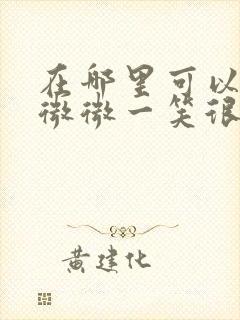 在哪里可以
微微一笑很
黄建化